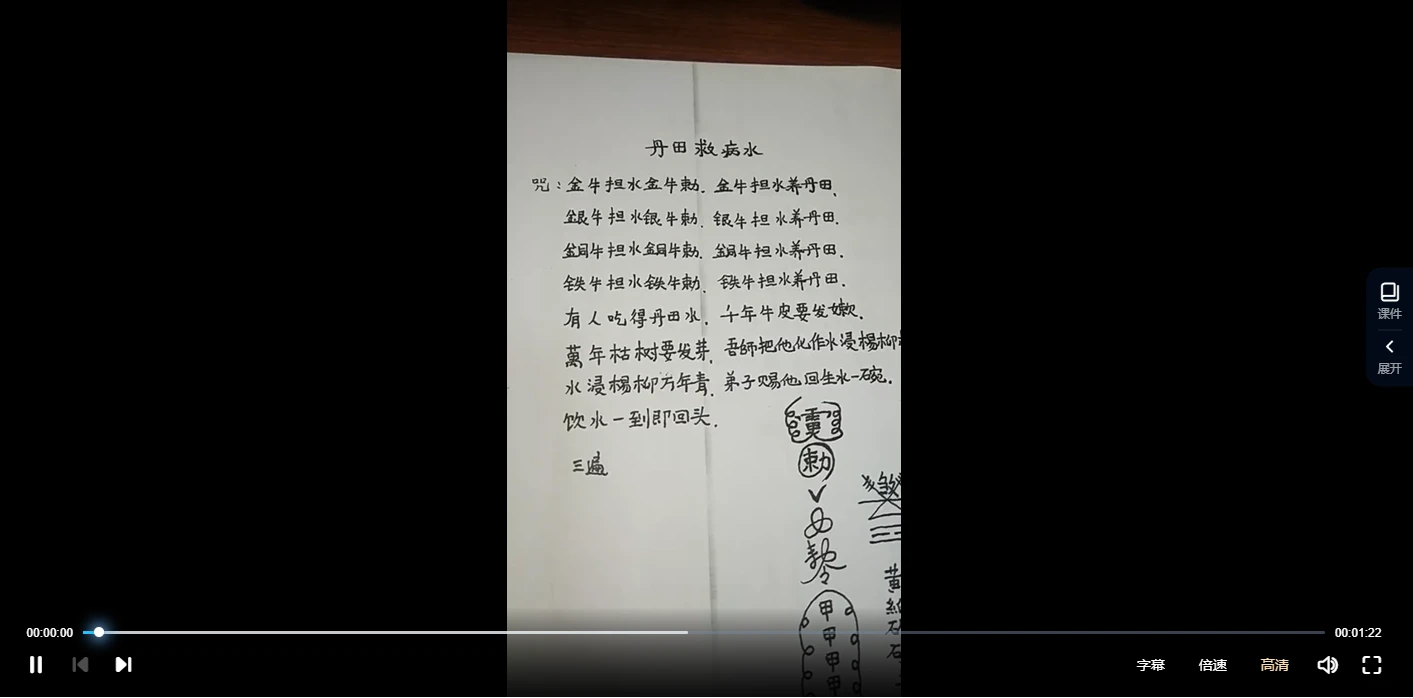 丹田救病水
咒:金牛担水金牛勅.金牛担水养丹田.
銀牛担水银牛勅.银牛担水养丹田.
銅牛担水銅牛勅.銅牛担水养丹田.
铁牛担水铁牛勅.铁牛担水养丹田.
有人吃得丹田水.千年牛皮要发嫩.
萬年枯树要发芽.吾師把他化作水浸楊柳
水浸楊柳万年青.弟子赐他回生水一碗.
饮水一到即回头.
三遍
勅
甲
甲
甲
甲
黄
課件
展开
00:00:00
00:01:22
字幕
倍速
高清